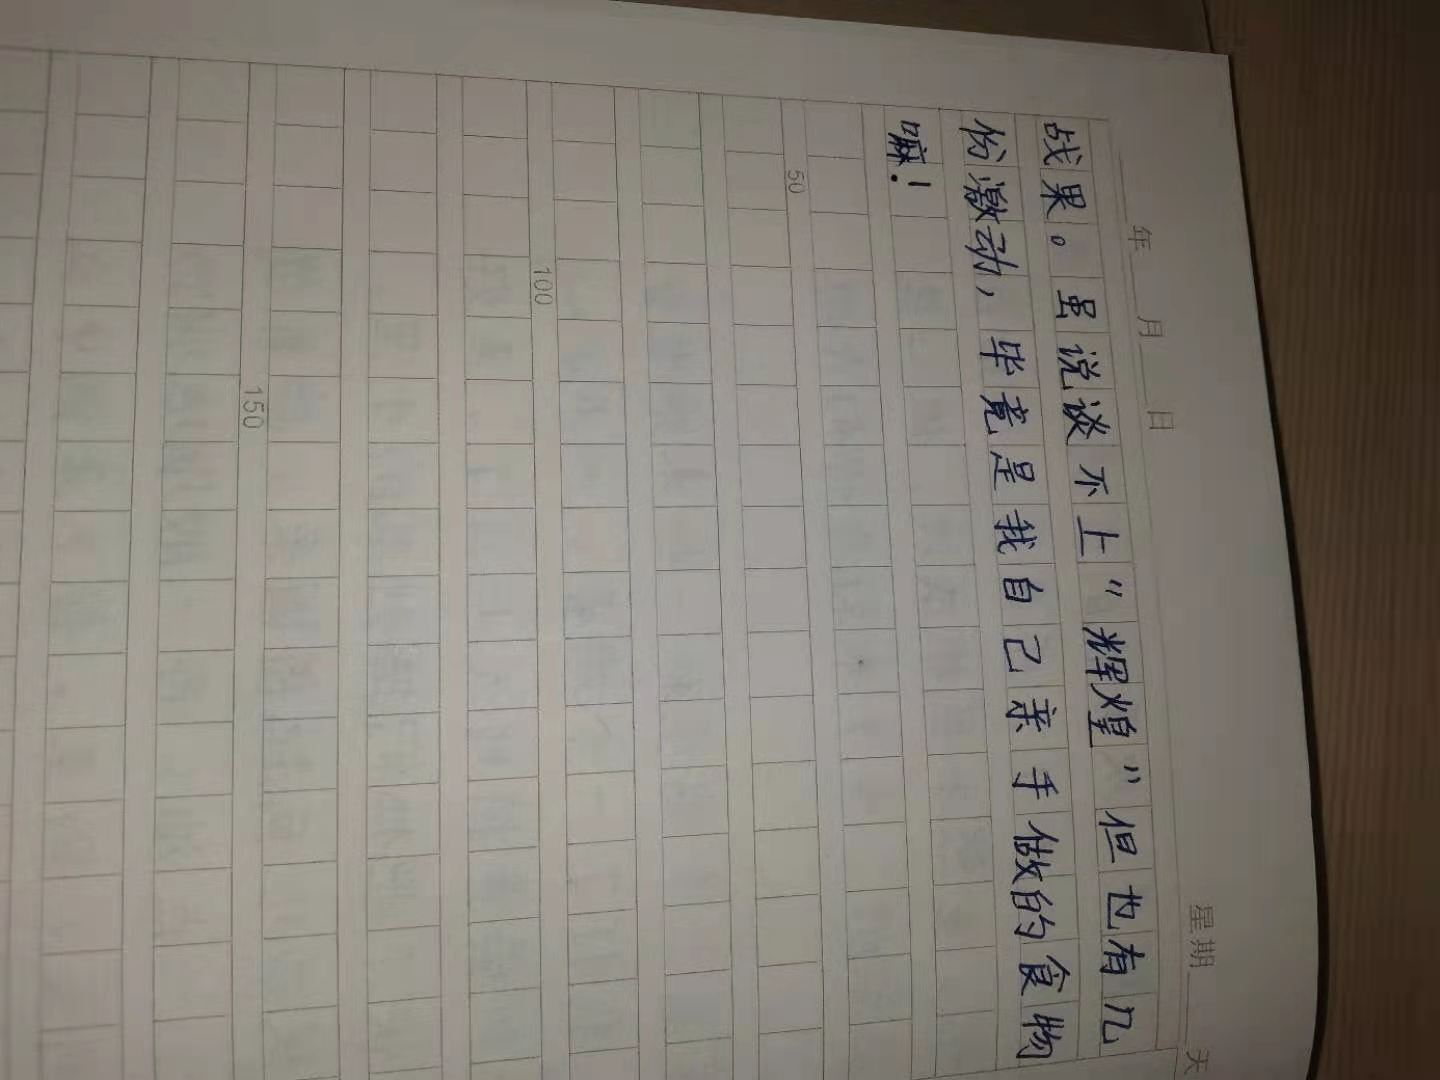 年 月 日 星期 天
战果。虽说谈不上“辉煌”但也有几
份激动，毕竟是我自己亲手做的食物
嘛！
50
100
150